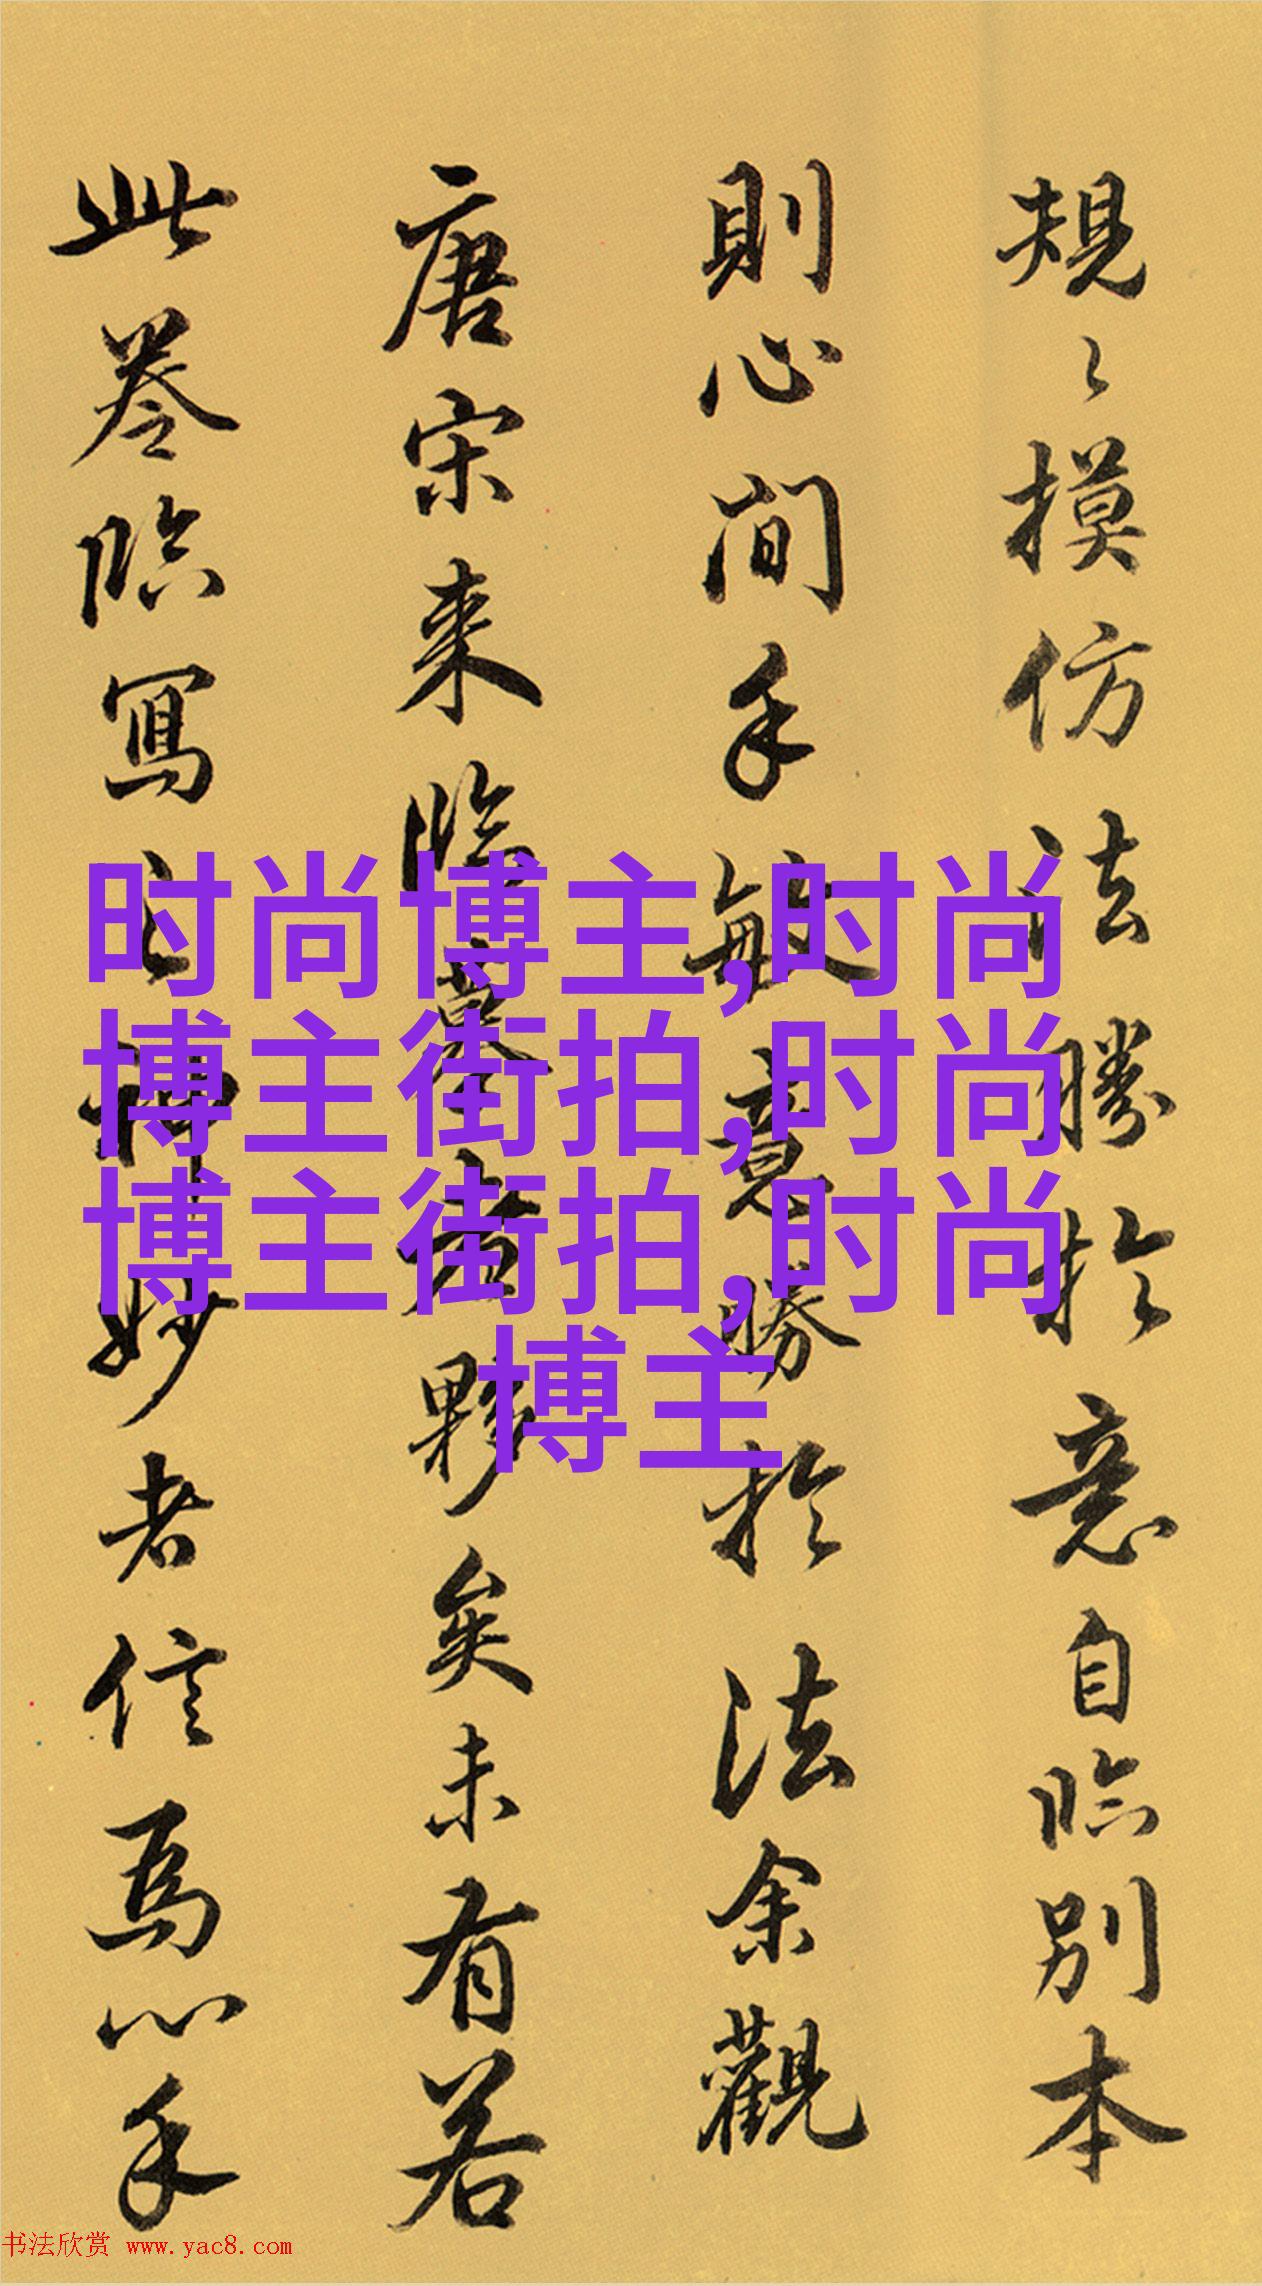 規〻摸仿法勝於意自臨别本
則心閒手敏意勝於法余觀
唐宋来臨摹者夥矣未有若
此卷臨寫之神妙者信為心手
时尚博主,时尚
博主街拍,时尚
博主街拍,时尚
博主
书法欣赏 www.yac8.com